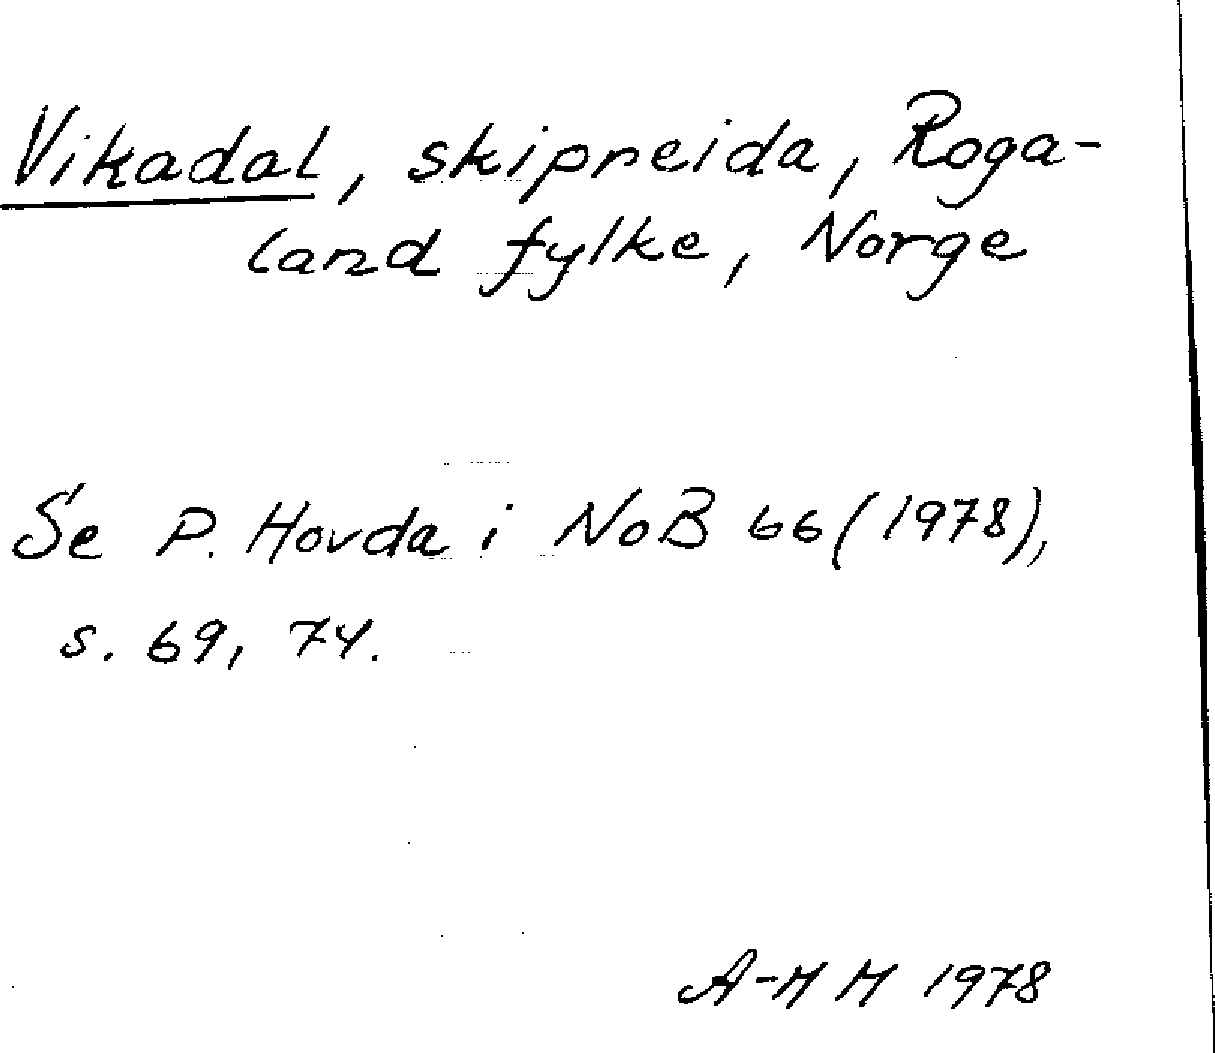 Vikadal, skipreida, Roga-
land fylke, Norge
Se P. Hovda i NoB 66 (1978),
s. 69, 74.
A-MM 1978